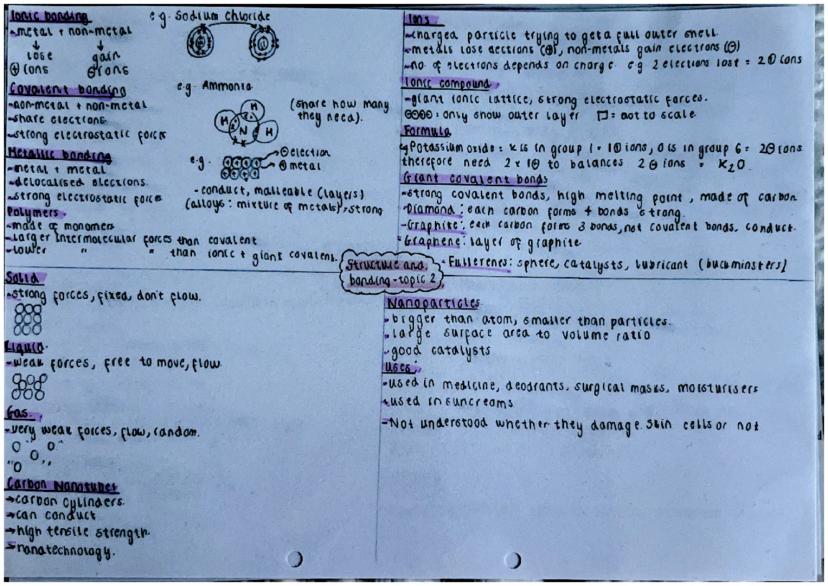 Ionic bonding
e.g. Sodium Chloride
-metal + non-metal
↓ ↓
lose gain
⊕ ions ⊖ ions
Covalent bonding
e.g. Ammonia
-non-metal + non-metal
-share electrons
-strong electrostatic forces
(share how many they need).
H H
N H
Metallic bonding
e.g.
⊖ electron
⊕ metal
-metal + metal
-delocalised electrons.
-strong electrostatic forces
-conduct, malleable (layers)
(alloys: mixture of metals), strong
Polymers
-made of monomers
-larger intermolecular forces than covalent
-lower " " than ionic + giant covalent.
Structure and
bonding - topic 2
Ions
-charged particle trying to get a full outer shell.
-metals lose electrons (⊕), non-metals gain electrons (⊖)
-no. of electrons depends on charge. e.g 2 electrons lose = 2⊕ ions
Ionic compound
-giant ionic lattice, strong electrostatic forces.
: only show outer layer : not to scale
Formula
Potassium oxide: K is in group 1 = 1⊕ ions, O is in group 6 = 2⊖ ions
therefore need 2 x 1⊕ to balances 2⊖ ions = K₂O.
Giant covalent bonds
-strong covalent bonds, high melting point, made of carbon
-Diamond: each carbon forms 4 bonds strong.
-Graphite: each carbon forms 3 bonds, not covalent bonds. conduct.
-Graphene: layer of graphite
-Fullerenes: sphere, catalysts, lubricant (bucuminsters)
Solid
-strong forces, fixed, don't flow.
Liquid
-weak forces, free to move, flow
Gas.
-very weak forces, flow, random.
Carbon Nanotubes
→carbon cylinders.
→can conduct
→high tensile strength.
-nanotechnology.
Nanoparticles
-bigger than atom, smaller than particles.
-large surface area to volume ratio
-good catalysts
Uses:
-used in medicine, deodrants, surgical masks, moisturisers
-used in suncreams
-Not understood whether they damage skin cells or not